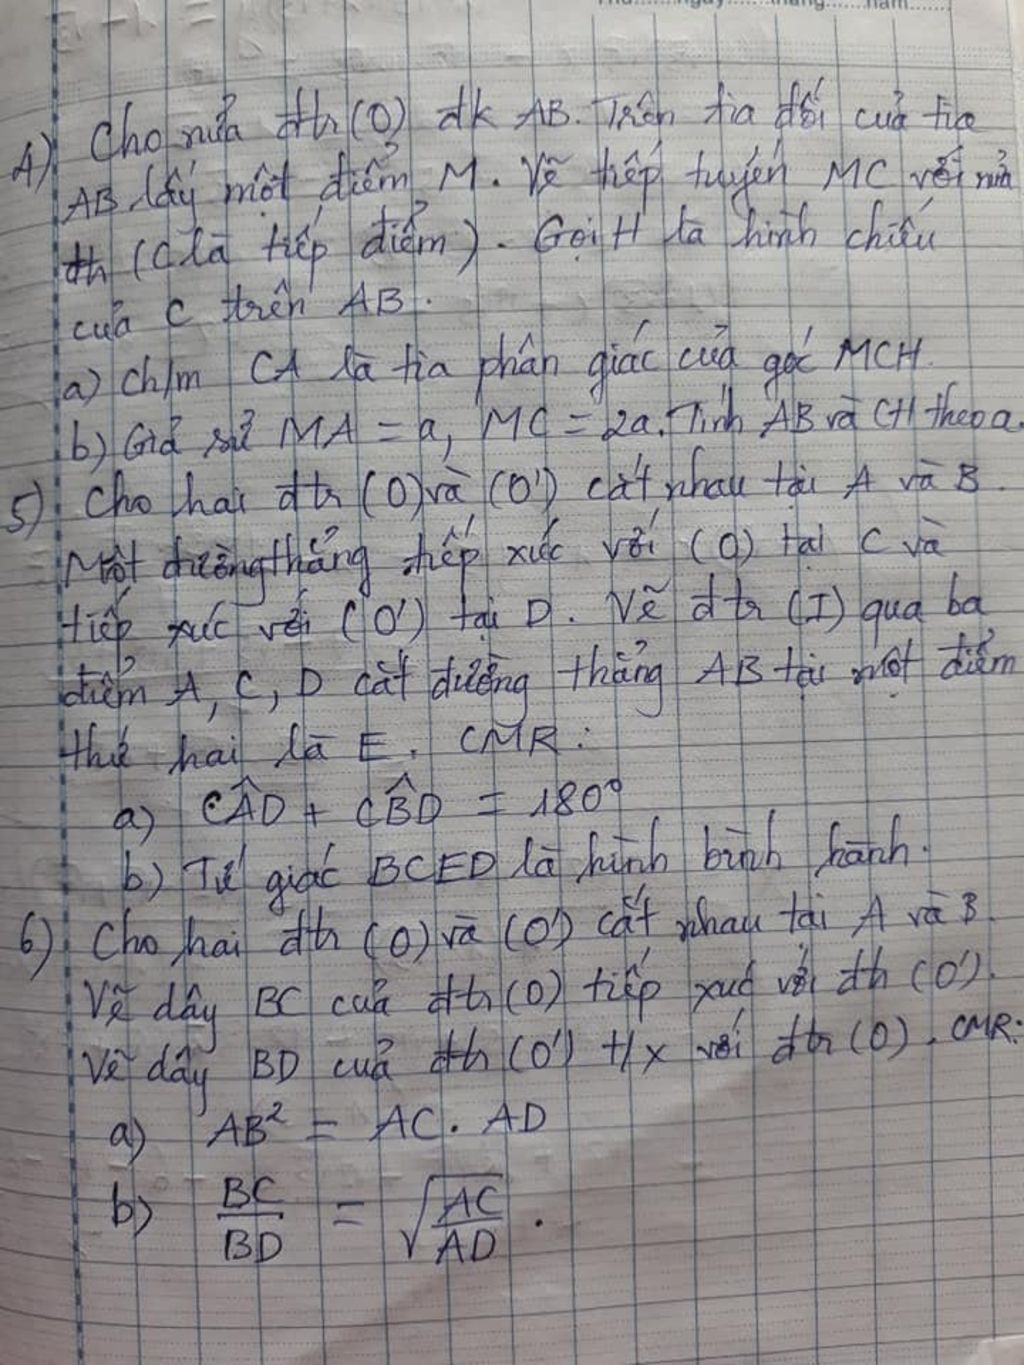 Thứ.......ngày.......tháng.......năm.......
4) Cho nửa đtr (O) đk AB. Trên tia đối của tia
AB lấy một điểm M. Vẽ tiếp tuyến MC với nửa
đtr (C là tiếp điểm). Gọi H là hình chiếu
của C trên AB.
a) Ch/m CA là tia phân giác của góc MCH.
b) Giả sử MA = a, MC = 2a. Tính AB và CH theo a.
5) Cho hai đtr (O) và (O') cắt nhau tại A và B.
Một đường thẳng tiếp xúc với (O) tại C và
tiếp xúc với (O') tại D. Vẽ đtr (I) qua ba
điểm A, C, D cắt đường thẳng AB tại một điểm
thứ hai là E. CMR:
a) CÂD + CB̂D = 180°
b) Tứ giác BCED là hình bình hành.
6) Cho hai đtr (O) và (O') cắt nhau tại A và B.
Vẽ dây BC của đtr (O) tiếp xúc với đtr (O').
Vẽ dây BD của đtr (O') t/x với đtr (O). CMR:
a) AB² = AC. AD
b) BC/BD = √(AC/AD).